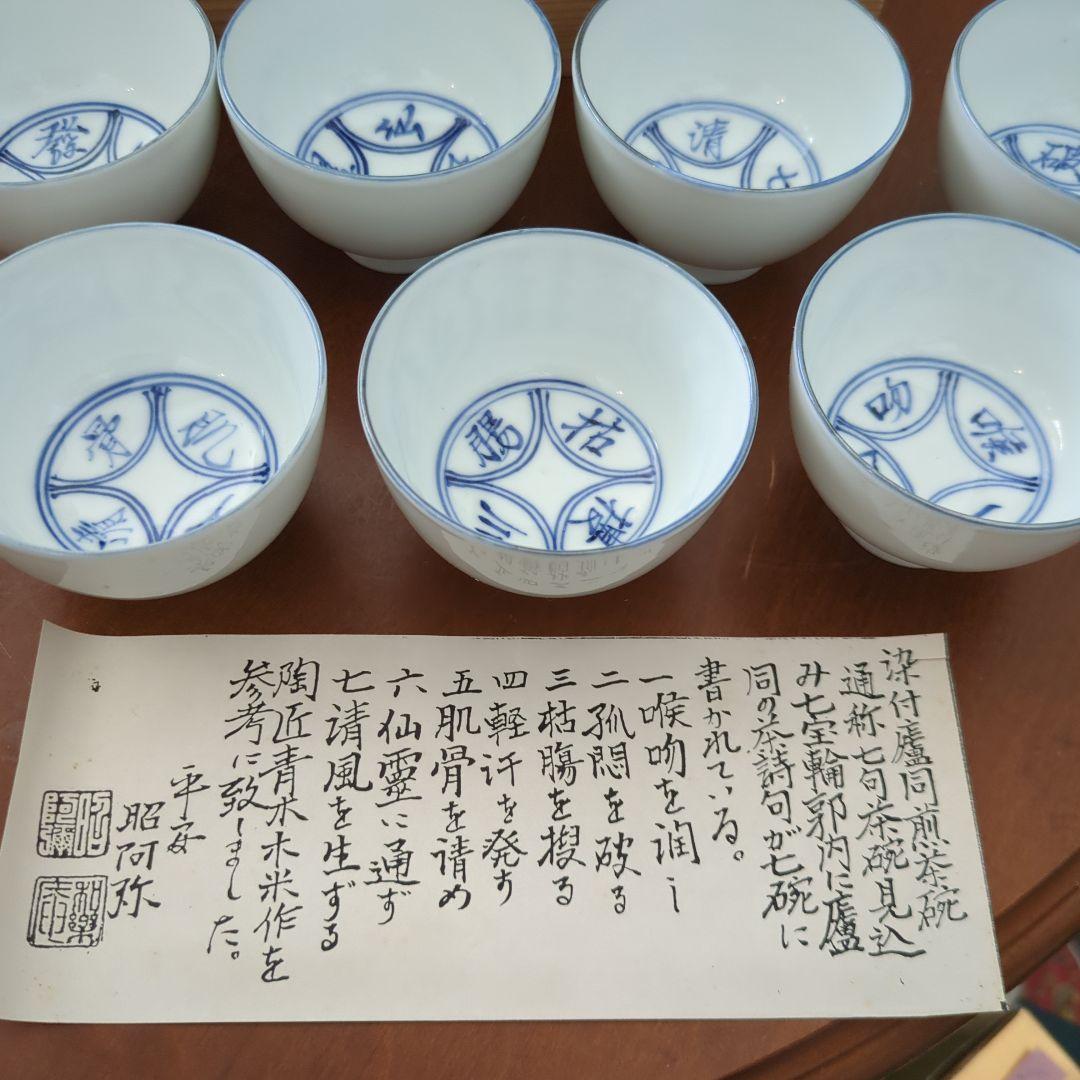 發
仙
清
七
破
骨
肌
清
腸
枯
三
搜
吻
喉
一
染付廬同煎茶碗
通称七句茶碗見込
み七宝輪郭内に廬
同の茶詩句が七碗に
書かれている。
一喉吻を潤し
二孤悶を破る
三枯腸を搜る
四軽汗を発す
五肌骨を清め
六仙靈に通ず
七清風を生ずる
陶匠青木木米作を
参考に致しました。
平安
昭阿弥